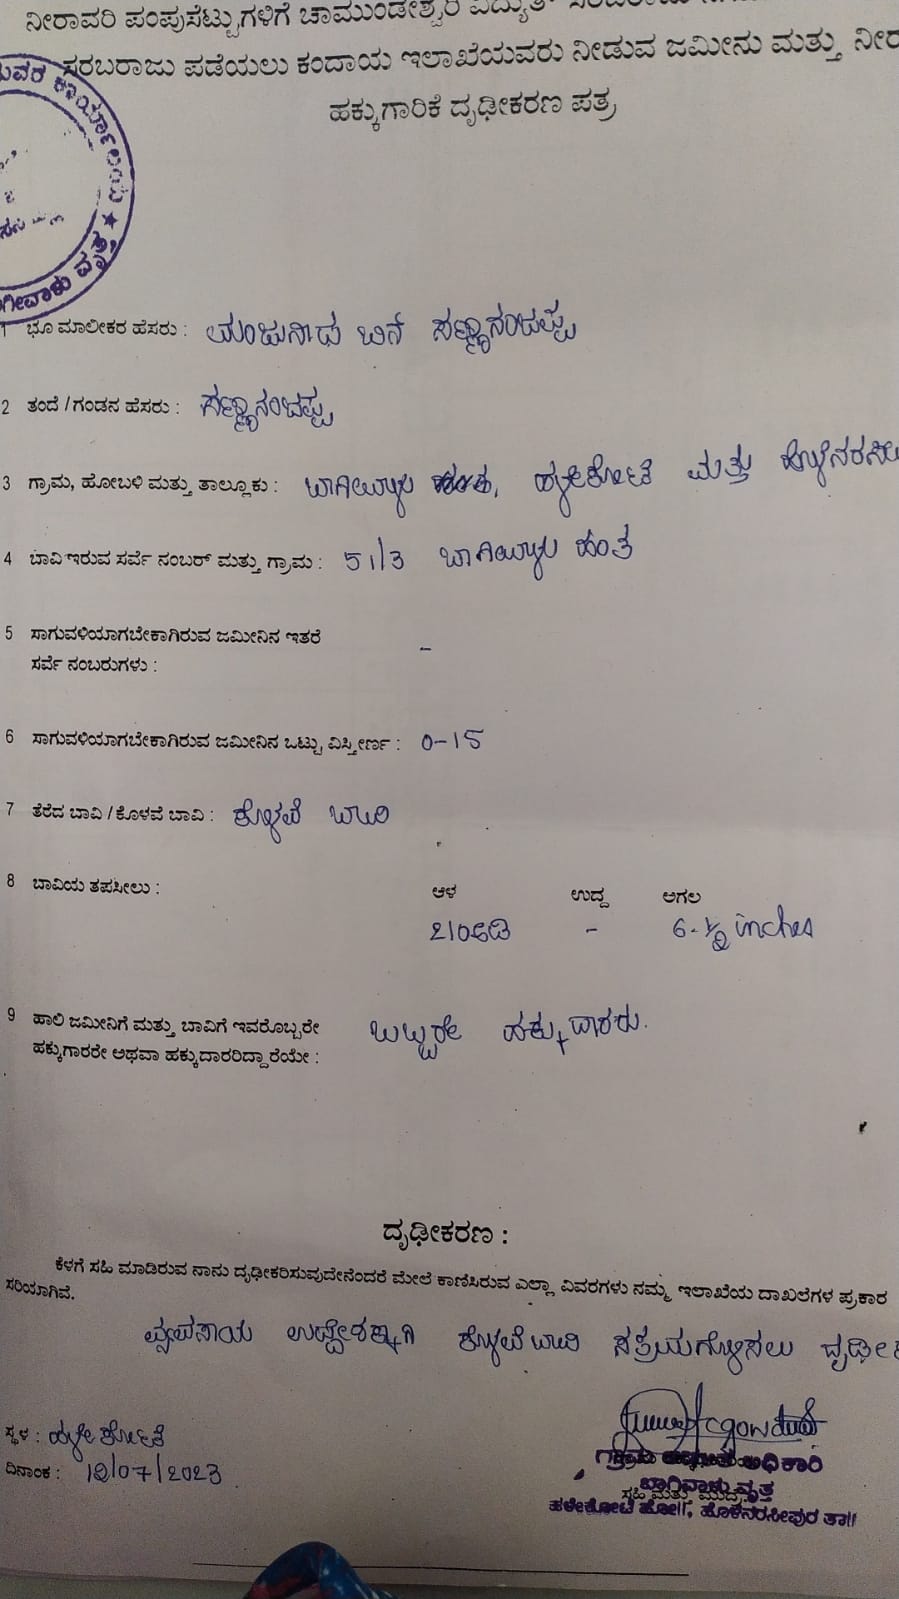 ನೀರಾವರಿ ಪಂಪುಸೆಟ್ಟುಗಳಿಗೆ ಚಾಮುಂಡೇಶ್ವರಿ ವಿದ್ಯುತ್
ಸರಬರಾಜು ಪಡೆಯಲು ಕಂದಾಯ ಇಲಾಖೆಯವರು ನೀಡುವ ಜಮೀನು ಮತ್ತು ನೀರ
ಹಕ್ಕುಗಾರಿಕೆ ದೃಢೀಕರಣ ಪತ್ರ
ಕಾರ್ಯಾಲಯ ★
ವೃತ್ತ
1 ಭೂ ಮಾಲೀಕರ ಹೆಸರು : ಮಂಜುನಾಥ ಬಿನ್ ಸಣ್ಣನಂಜಪ್ಪ
2 ತಂದೆ / ಗಂಡನ ಹೆಸರು : ಸಣ್ಣನಂಜಪ್ಪ
3 ಗ್ರಾಮ, ಹೋಬಳಿ ಮತ್ತು ತಾಲ್ಲೂಕು : ಬಾಗಿವಾಳು ಹಳೇಕೋಟೆ ಮತ್ತು ಹೊಳೆನರಸೀ
4 ಬಾವಿ ಇರುವ ಸರ್ವೆ ನಂಬರ್ ಮತ್ತು ಗ್ರಾಮ : 51/3 ಬಾಗಿವಾಳು
5 ಸಾಗುವಳಿಯಾಗಬೇಕಾಗಿರುವ ಜಮೀನಿನ ಇತರೆ -
ಸರ್ವೆ ನಂಬರುಗಳು :
6 ಸಾಗುವಳಿಯಾಗಬೇಕಾಗಿರುವ ಜಮೀನಿನ ಒಟ್ಟು ವಿಸ್ತೀರ್ಣ : 0-15
7 ತೆರೆದ ಬಾವಿ / ಕೊಳವೆ ಬಾವಿ : ಕೊಳವೆ ಬಾವಿ
8 ಬಾವಿಯ ತಪಸೀಲು : ಆಳ ಉದ್ದ ಅಗಲ
210ಅಡಿ - 6-½ inches
9 ಹಾಲಿ ಜಮೀನಿಗೆ ಮತ್ತು ಬಾವಿಗೆ ಇವರೊಬ್ಬರೇ ಒಬ್ಬರೇ ಹಕ್ಕುದಾರರು.
ಹಕ್ಕುಗಾರರೇ ಅಥವಾ ಹಕ್ಕುದಾರರಿದ್ದಾರೆಯೇ :
ದೃಢೀಕರಣ :
ಕೆಳಗೆ ಸಹಿ ಮಾಡಿರುವ ನಾನು ದೃಢೀಕರಿಸುವುದೇನೆಂದರೆ ಮೇಲೆ ಕಾಣಿಸಿರುವ ಎಲ್ಲಾ ವಿವರಗಳು ನಮ್ಮ ಇಲಾಖೆಯ ದಾಖಲೆಗಳ ಪ್ರಕಾರ
ಸರಿಯಾಗಿವೆ.
ವ್ಯವಸಾಯ ಉದ್ದೇಶಕ್ಕಾಗಿ ಕೊಳವೆ ಬಾವಿ ಸಕ್ರಮಗೊಳಿಸಲು ದೃಢೀ
ಸ್ಥಳ : ಹಳೇಕೋಟೆ
ದಿನಾಂಕ : 12/07/2023
ಅಧಿಕಾರಿ
ಬಾಗಿವಾಳು ವೃತ್ತ
ಸಹಿ ಮತ್ತು ಮುದ್ರೆ
ಹಳೇಕೋಟೆ ಹೋ||, ಹೊಳೆನರಸೀಪುರ ತಾ||